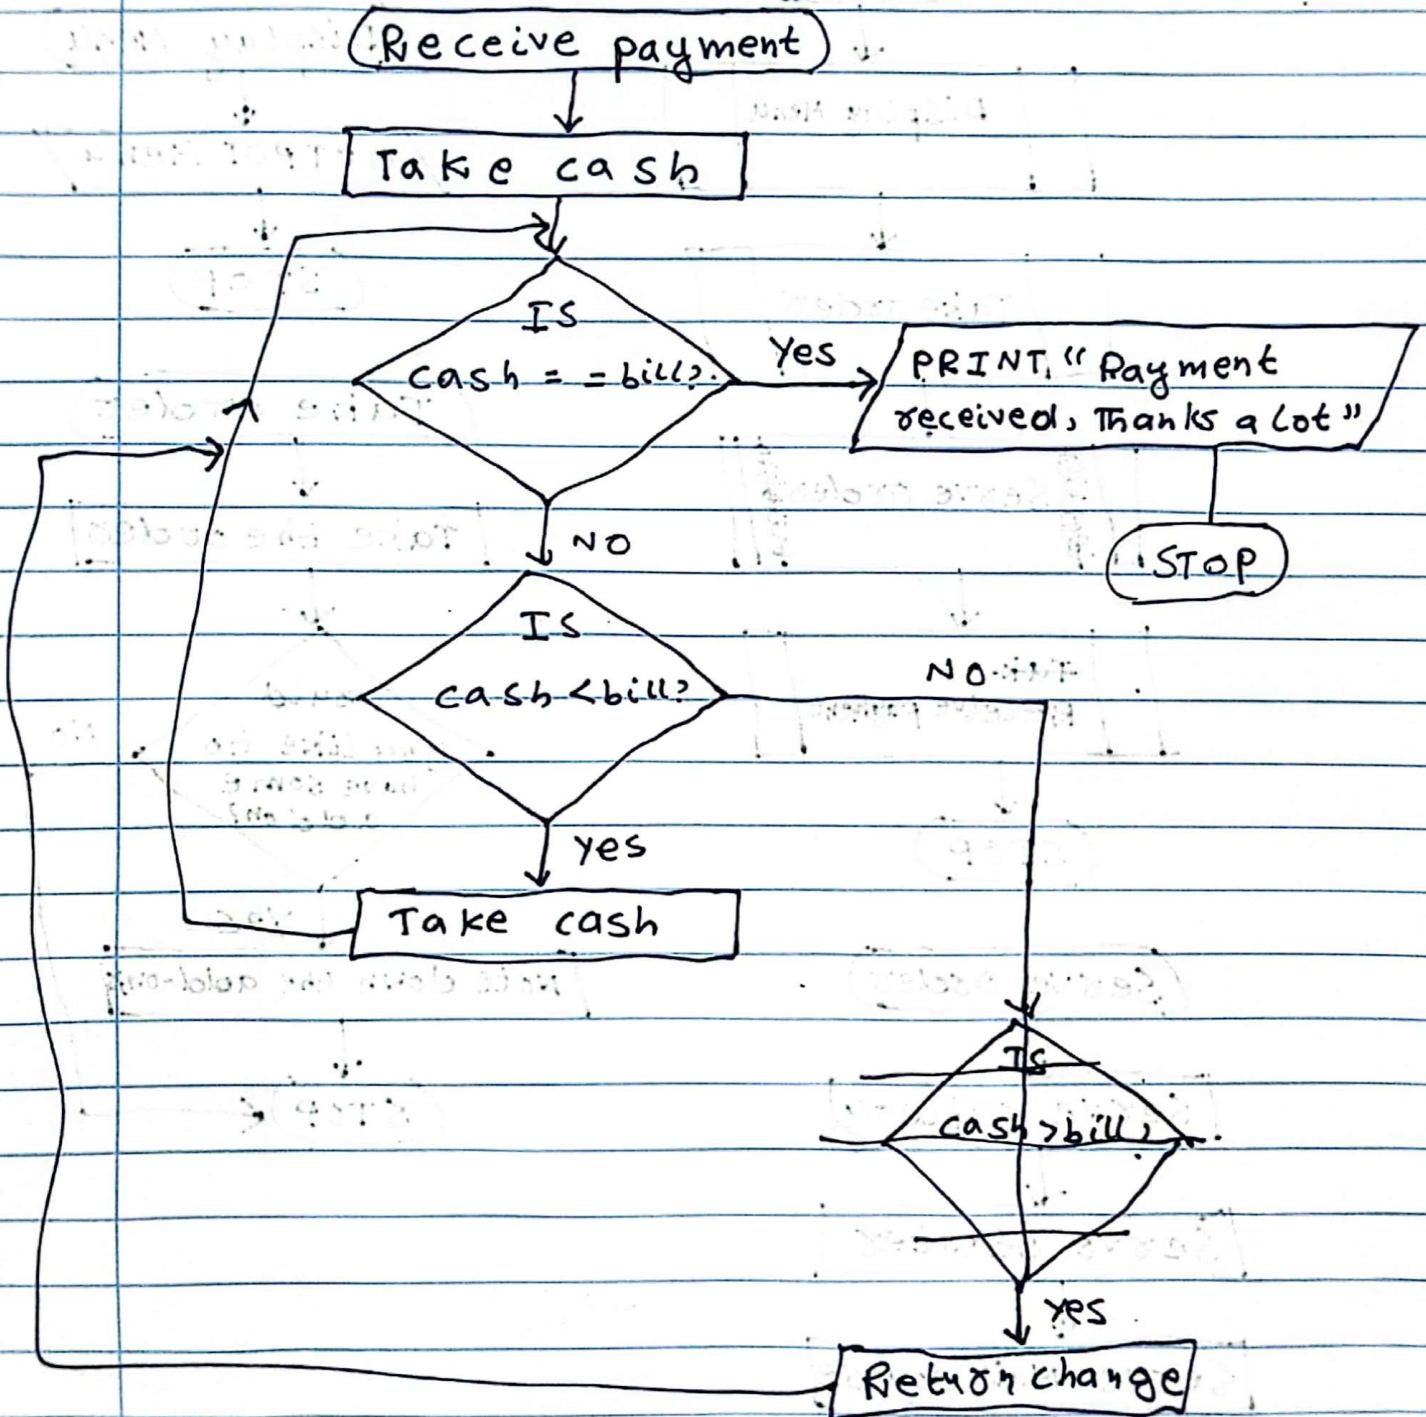 Receive payment
Take cash
IS
cash = = bill?
Yes
PRINT, “Payment
received, Thanks a lot”
STOP
NO
IS
cash < bill?
NO
yes
Take cash
IS
cash > bill?
yes
Return change